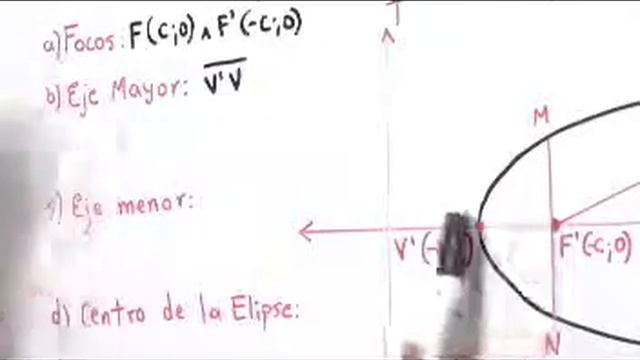 a) Focos: F(c;0) ∧ F'(-c;0)
b) Eje Mayor: V'V
Eje menor:
d) Centro de la Elipse:
M
V'(-
F'(-c;0)
N